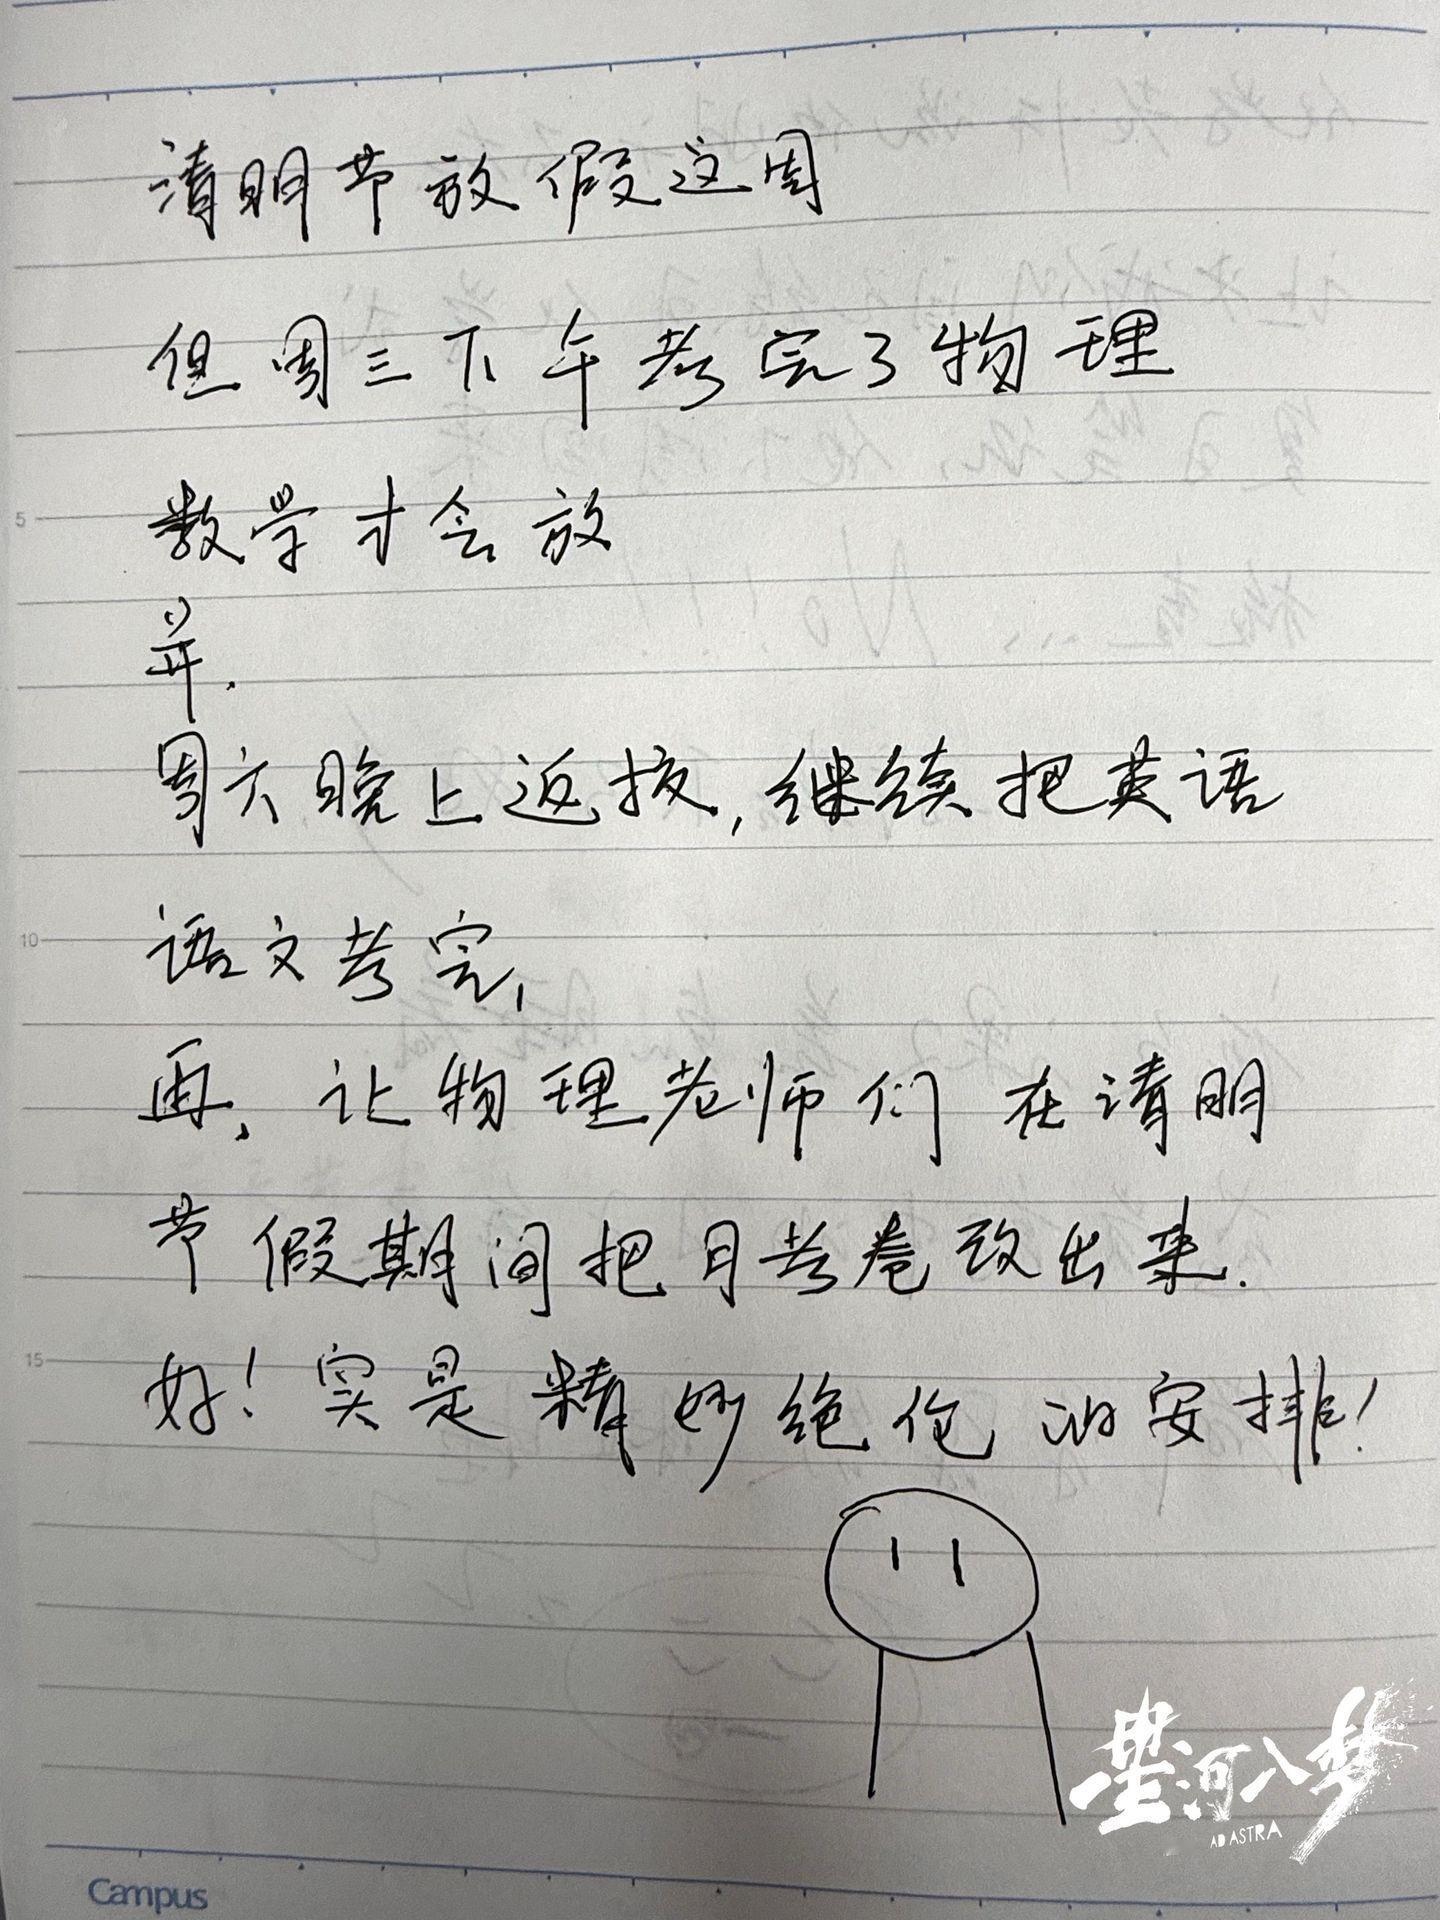 清明节放假这周
但周三下午考完了物理
数学才会放
并.
周六晚上返校,继续把英语
语文考完,
再,让物理老师们在清明
节假期间把月考卷改出来.
好!实是精妙绝伦的安排!
星河入梦
AD ASTRA
5
10
15
Campus